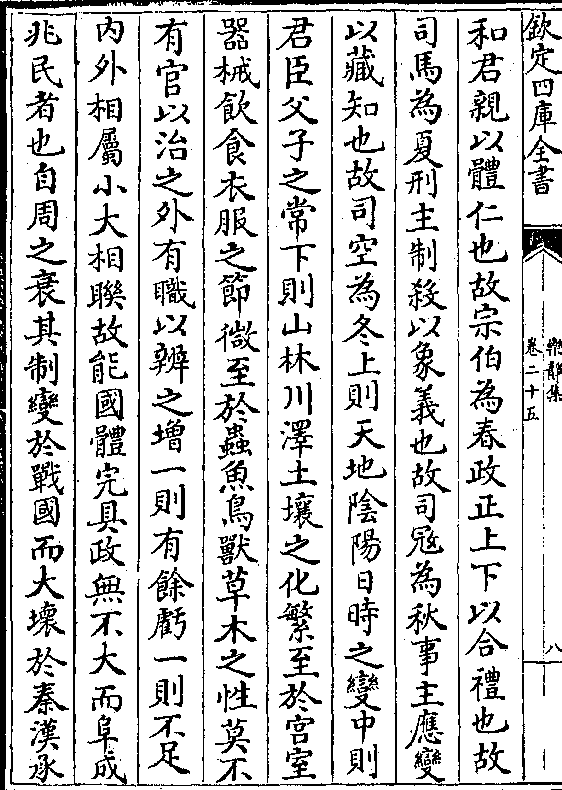 欽定四庫全書
樂靜集
卷二十五
八
和君親以體仁也故宗伯為春政正上下以合禮也故
司馬為夏刑主制殺以象義也故司冦為秋事主應變
以藏知也故司空為冬上則天地陰陽日時之變中則
君臣父子之常下則山林川澤土壤之化繁至於宫室
器械飲食衣服之節微至於蟲魚鳥獸草木之性莫不
有官以治之外有職以辨之增一則有餘虧一則不足
内外相屬小大相聯故能國體完具政無不大而阜成
兆民者也自周之衰其制變於戰國而大壞於秦漢承